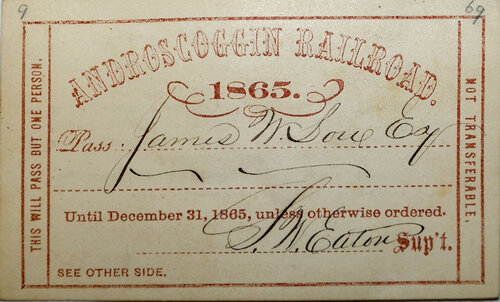 9
69
ANDROSCOGGIN RAILROAD.
1865.
Pass James W Esq
Until December 31, 1865, unless otherwise ordered.
S. W. Eaton Sup't.
SEE OTHER SIDE.
THIS WILL PASS BUT ONE PERSON.
NOT TRANSFERABLE.